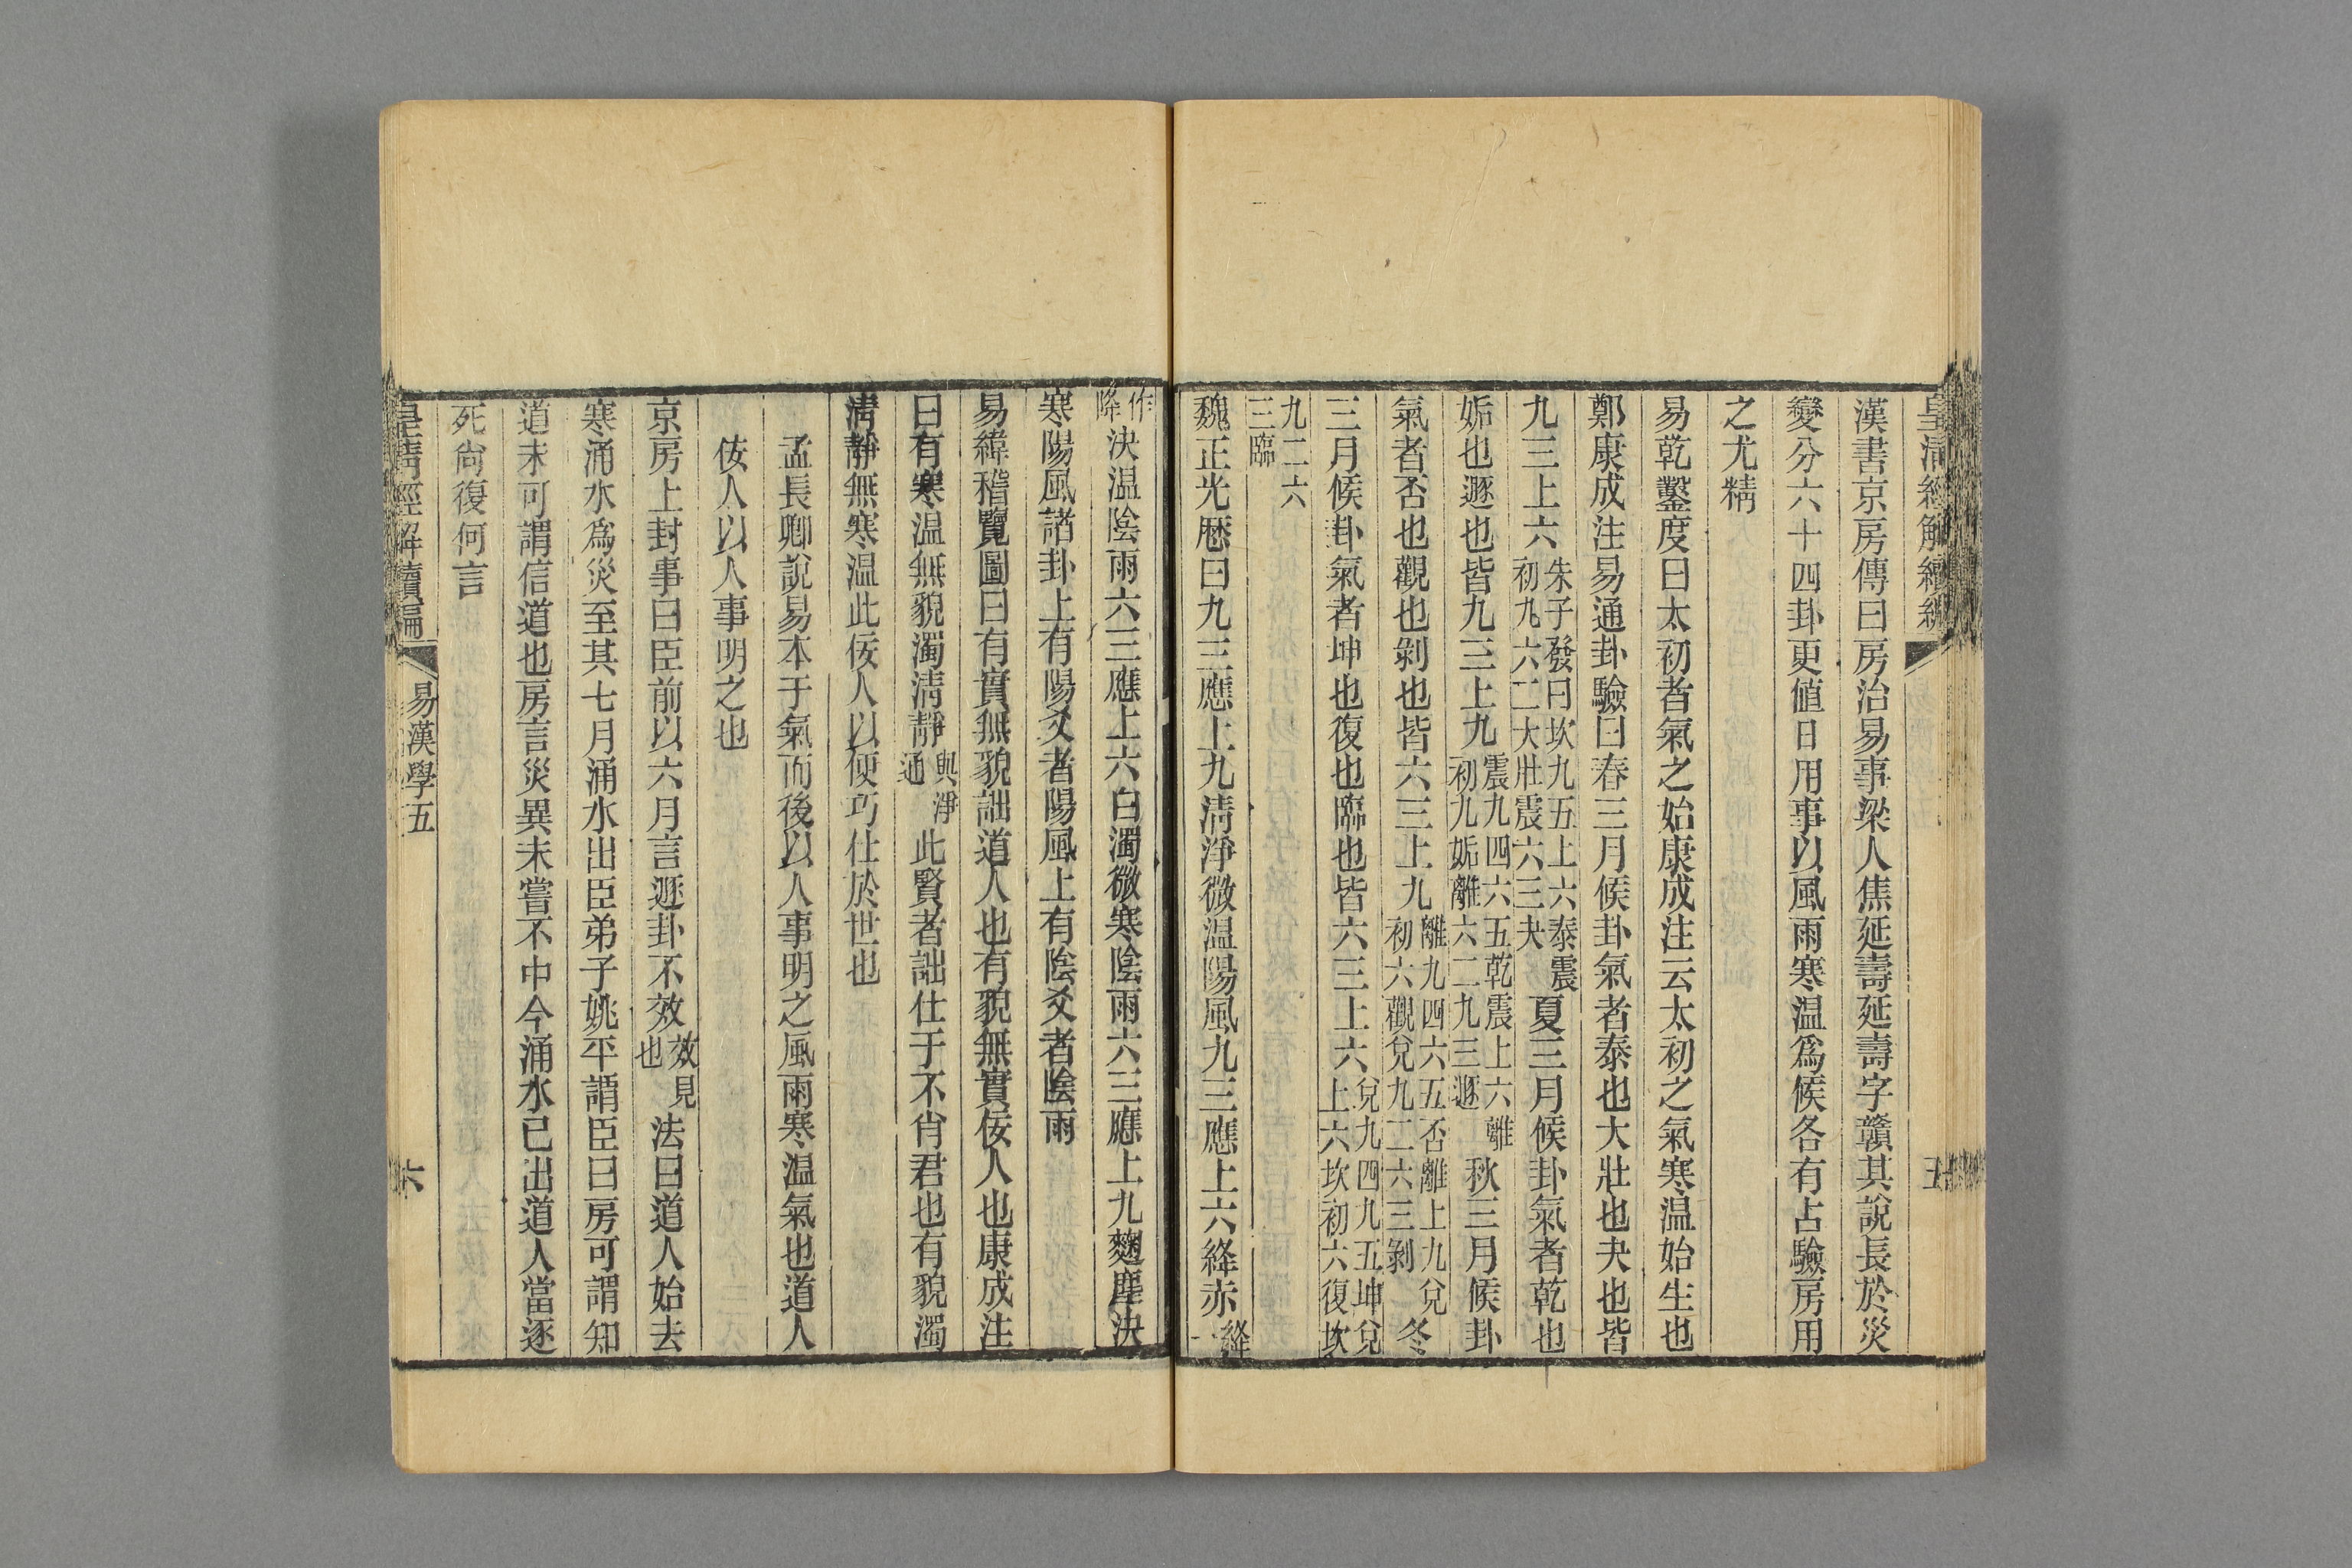 皇清經解續編
五
漢書京房傳曰房治易事梁人焦延壽延壽字贛其說長於災
變分六十四卦更値日用事以風雨寒温爲候各有占驗房用
之尤精
易乾鑿度曰太初者氣之始康成注云太初之氣寒温始生也
鄭康成注易通卦驗曰春三月候卦氣者泰也大壯也夬也皆
九三上六朱子發曰坎九五上六泰震初九六二大壯震六三夬夏三月候卦氣者乾也
姤也遯也皆九三上九震九四六五乾震上六離初九姤離六二九三遯秋三月候卦
氣者否也觀也剝也皆六三上九離九四六五否離上九兌初六觀兌九二六三剝冬
三月候卦氣者坤也復也臨也皆六三上六兌九四九五坤兌上六坎初六復坎
九二六三臨
魏正光曆曰九三應上九清淨微温陽風九三應上六絳赤絳一
作降決温陰雨六三應上六白濁微寒陰雨六三應上九麴塵決
寒陽風諸卦上有陽爻者陽風上有陰爻者陰雨
易緯稽覽圖曰有實無貌詘道人也有貌無實佞人也康成注
曰有寒温無貌濁清靜與淨通此賢者詘仕于不肖君也有貌濁
清靜無寒温此佞人以便巧仕於世也
孟長卿說易本于氣而後以人事明之風雨寒温氣也道人
佞人以人事明之也
京房上封事曰臣前以六月言遯卦不效效見也法曰道人始去
寒涌水爲災至其七月涌水出臣弟子姚平謂臣曰房可謂知
道未可謂信道也房言災異未嘗不中今涌水已出道人當逐
死尙復何言
皇清經解續編
易漢學五
六